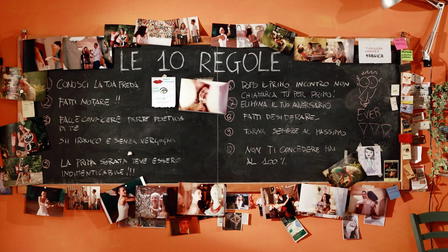 LE 10 REGOLE
① CONOSCI LA TUA PREDA
② FATTI NOTARE!!
③ FALLE CONOSCERE PARTE POETICA
DI TE
SII IRONICO E SENZA VERGOGNA
⑤ LA PRIMA SERATA DEVE ESSERE
INDIMENTICABILE!!!
⑥ DOPO IL PRIMO INCONTRO NON
CHIAMARLA TU PER PRIMO.
⑦ ELIMINA IL TUO AVVERSARIO
⑧ FATTI DESIDERARE
⑨ TORNA SEMPRE AL MASSIMO
⑩ NON TI CONCEDERE MAI
AL 100%